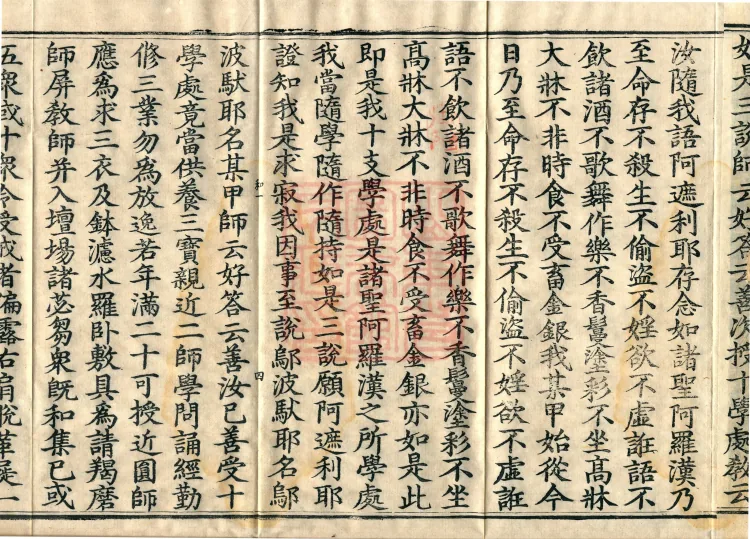 如是三說師云好答云善次授十學處教云
汝隨我語阿遮利耶存念如諸聖阿羅漢乃
至命存不殺生不偷盜不婬欲不虛誑語不
飲諸酒不歌舞作樂不香鬘塗彩不坐高牀
大牀不非時食不受畜金銀我某甲始從今
日乃至命存不殺生不偷盜不婬欲不虛誑
語不飲諸酒不歌舞作樂不香鬘塗彩不坐
髙牀大牀不非時食不受畜金銀亦如是此
即是我十支學處是諸聖阿羅漢之所學處
我當隨學隨作隨持如是三說願阿遮利耶
證知我是求寂我因事至說鄔波馱耶名鄔
和一
四
波馱耶名某甲師云好答云善汝已善受十
學處竟當供養三寶親近二師學問誦經勤
修三業勿為放逸若年滿二十可授近圓師
應為求三衣及鉢濾水羅卧敷具為請羯磨
師屏教師并入壇場諸苾芻眾既和集已或
五眾或十眾令受戒者偏露右肩脫革屣一